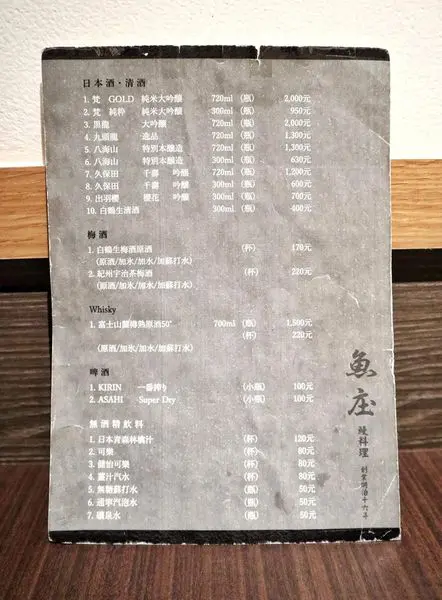 日本酒・清酒
1. 梵 GOLD 純米大吟釀 720ml (瓶) 2,000元
2. 梵 純粹 純米大吟釀 300ml (瓶) 950元
3. 黑龍 大吟釀 720ml (瓶) 2,000元
4. 九頭龍 逸品 720ml (瓶) 1,300元
5. 八海山 特別本釀造 720ml (瓶) 1,300元
6. 八海山 特別本釀造 300ml (瓶) 630元
7. 久保田 千壽 吟釀 720ml (瓶) 1,200元
8. 久保田 千壽 吟釀 300ml (瓶) 600元
9. 出羽櫻 櫻花 吟釀 300ml (瓶) 700元
10. 白鶴生清酒 300ml (瓶) 400元
梅酒
1. 白鶴生梅酒原酒 (杯) 170元
(原酒/加氷/加水/加蘇打水)
2. 紀州宇治茶梅酒 (杯) 220元
(原酒/加氷/加水/加蘇打水)
Whisky
1. 富士山麓樽熟原酒50° 700ml (瓶) 1,500元
(杯) 220元
(原酒/加氷/加水/加蘇打水)
啤酒
1. KIRIN 一番搾り (小瓶) 100元
2. ASAHI Super Dry (小瓶) 100元
無酒精飲料
1. 日本青森林檎汁 (杯) 120元
2. 可樂 (杯) 80元
3. 健怡可樂 (杯) 80元
4. 薑汁汽水 (杯) 80元
5. 無糖蘇打水 (瓶) 50元
6. 通寧汽泡水 (瓶) 50元
7. 礦泉水 (瓶) 50元
魚庄
鰻料理
創業明治十六年